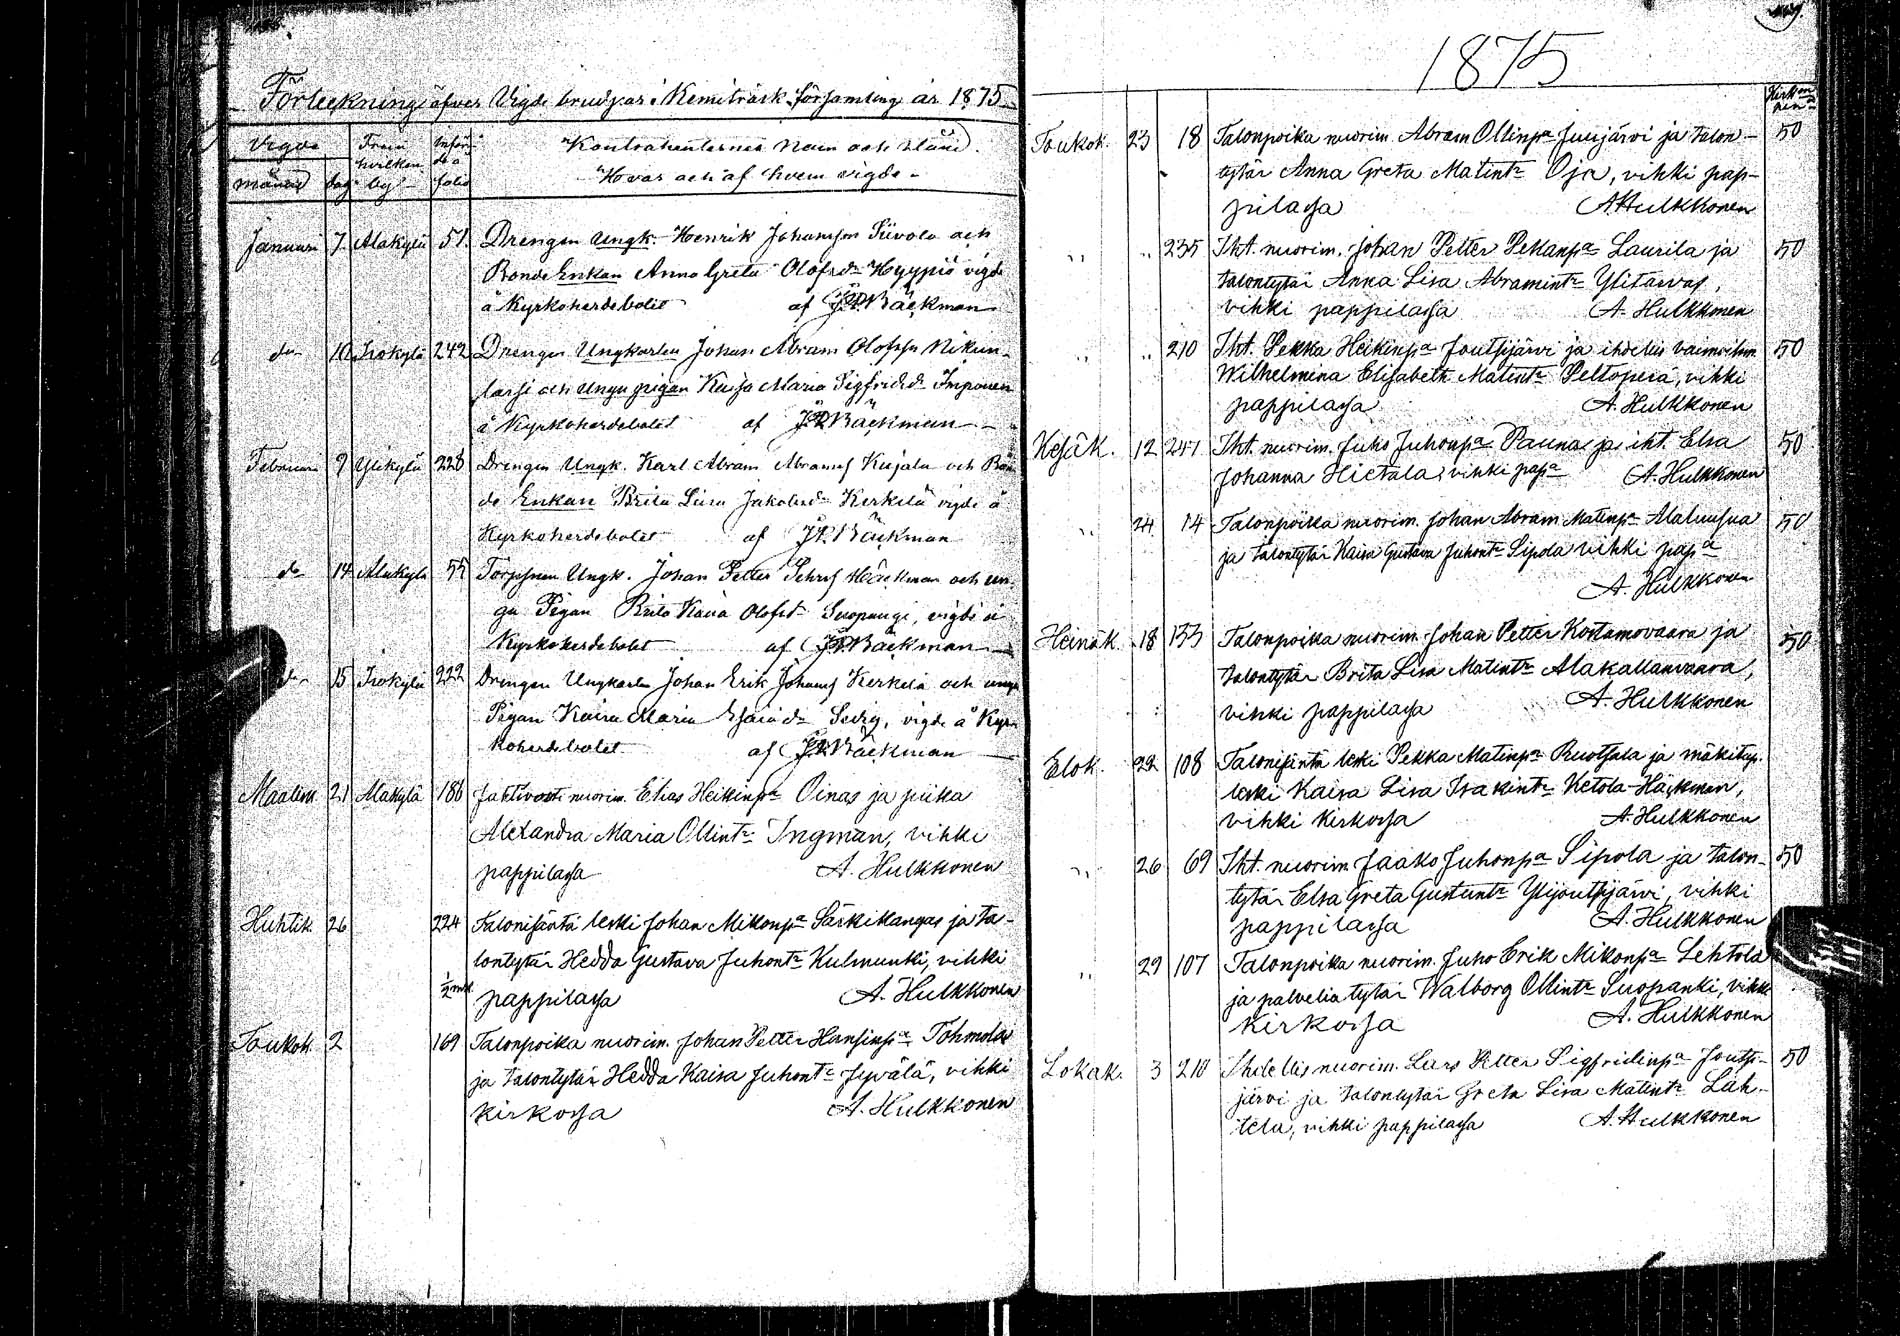 Förteckning öfver Vigde brudpar i Kemiträsk församling år 1875
Vigde
Från hvilken by
Införde å folio
Kontrahenternes namn och stånd.
Hvar och af hvem vigde
månad dag
Januari 7 Alakylä 51. Drengen Ungk. Henrik Johansson Siivola och
Bonde Enkan Anna Greta Olofsdr Hyypiö vigde
å Kyrkoherdebolet af J.W. Bäckman
do Isokylä 242 Drengen Ungkarlen Johan Abram Olofsson Nikun-
lassi och unga pigan Kaisa Maria Sigfridsdr Imponen
å Kyrkoherdebolet af Bäckman
Februari 9 Ylikylä 228 Drengen Ungk. Karl Abram Abramss Kujala och Bon-
de Enkan Brita Liisa Jakobsdr Kerkelä vigde å
Kyrkoherdebolet af Bäckman
do 14 Alakylä 55 Torpson Ungk. Johan Petter Pehrss Häckman och un-
ga Pigan Brita Kaisa Olofsdr Suopangi, vigde å
Kyrkoherdebolet af Bäckman
do 15 Isokylä 222 Drengen Ungkarlen Johan Erik Johanss Kerkelä och unga
Pigan Kaisa Maria Esaiædr vigde å Kyr-
koherdebolet af Bäckman
Maalisk. 21 Alakylä 186 nuorim. Elias Heikinpa Oinas ja piika
Alexandra Maria Ollintr Ingman, vihki
pappilassa A. Hulkkonen
Huhtik. 26 224 Talonisäntä leski Johan Mikonpa Särkikangas ja ta-
lontytär Hedda Gustava Juhontr Kulmunki, vihki
1/2 mk. pappilassa A. Hulkkonen
Toukok. 2 169 Talonpoika nuorim. Johan Petter Hansinpa Tohmola
ja talontytär Hedda Kaisa Juhontr Jyvälä, vihki
kirkossa A. Hulkkonen
1875
Toukok. 23 18 Talonpoika nuorim. Abram Ollinpa Juujärvi ja talon- 50
tytär Anna Greta Matintr Oja, vihki pap-
pilassa A. Hulkkonen
„ „ 235 Iht. nuorim. Johan Petter Pekanpa Laurila ja 50
talontytär Anna Lisa Abramintr Ylitarvas,
vihki pappilassa A. Hulkkonen
„ „ 210 Iht. Pekka Heikinpa Joutsijärvi ja itsellis vaimoihm. 50
Wilhelmina Elisabeth Matintr Peltoperä, vihki
pappilassa A. Hulkkonen
Kesäk. 12 241 Iht. nuorim. Juho Juhonpa Pauna ja iht. Elsa 50
Johanna Hietala, vihki papa A. Hulkkonen
„ 24 14 Talonpoika nuorim. Johan Abram Matinpa Alaluusua 50
ja talontytär Kaisa Gustava Juhontr Sipola vihki papa
A. Hulkkonen
Heinäk. 18 133 Talonpoika nuorim. Johan Petter Kostamovaara ja 50
talontytär Brita Lisa Matintr Alakallanvaara,
vihki pappilassa A. Hulkkonen
Elok. 22 108 Talonisäntä leski Pekka Matinpa Ruotsala ja mäkitup.
leski Kaisa Lisa Isakintr Ketola-Häckman,
vihki kirkossa A. Hulkkonen
„ 26 69 Iht. nuorim. Jaako Juhonpa Sipola ja talon- 50
tytär Elsa Greta Gustuntr Ylijoutsijärvi, vihki
pappilassa A. Hulkkonen
„ 29 107 Talonpoika nuorim. Juho Erik Mikonpa Lehtola
ja palvelia tytär Walborg Ollintr Suopanki, vihki
kirkossa A. Hulkkonen
Lokak. 3 210 Itsellis nuorim. Lars Petter Sigfridinpa Joutsi- 50
järvi ja talontytär Greta Lisa Matintr Läh-
telä, vihki pappilassa A. Hulkkonen